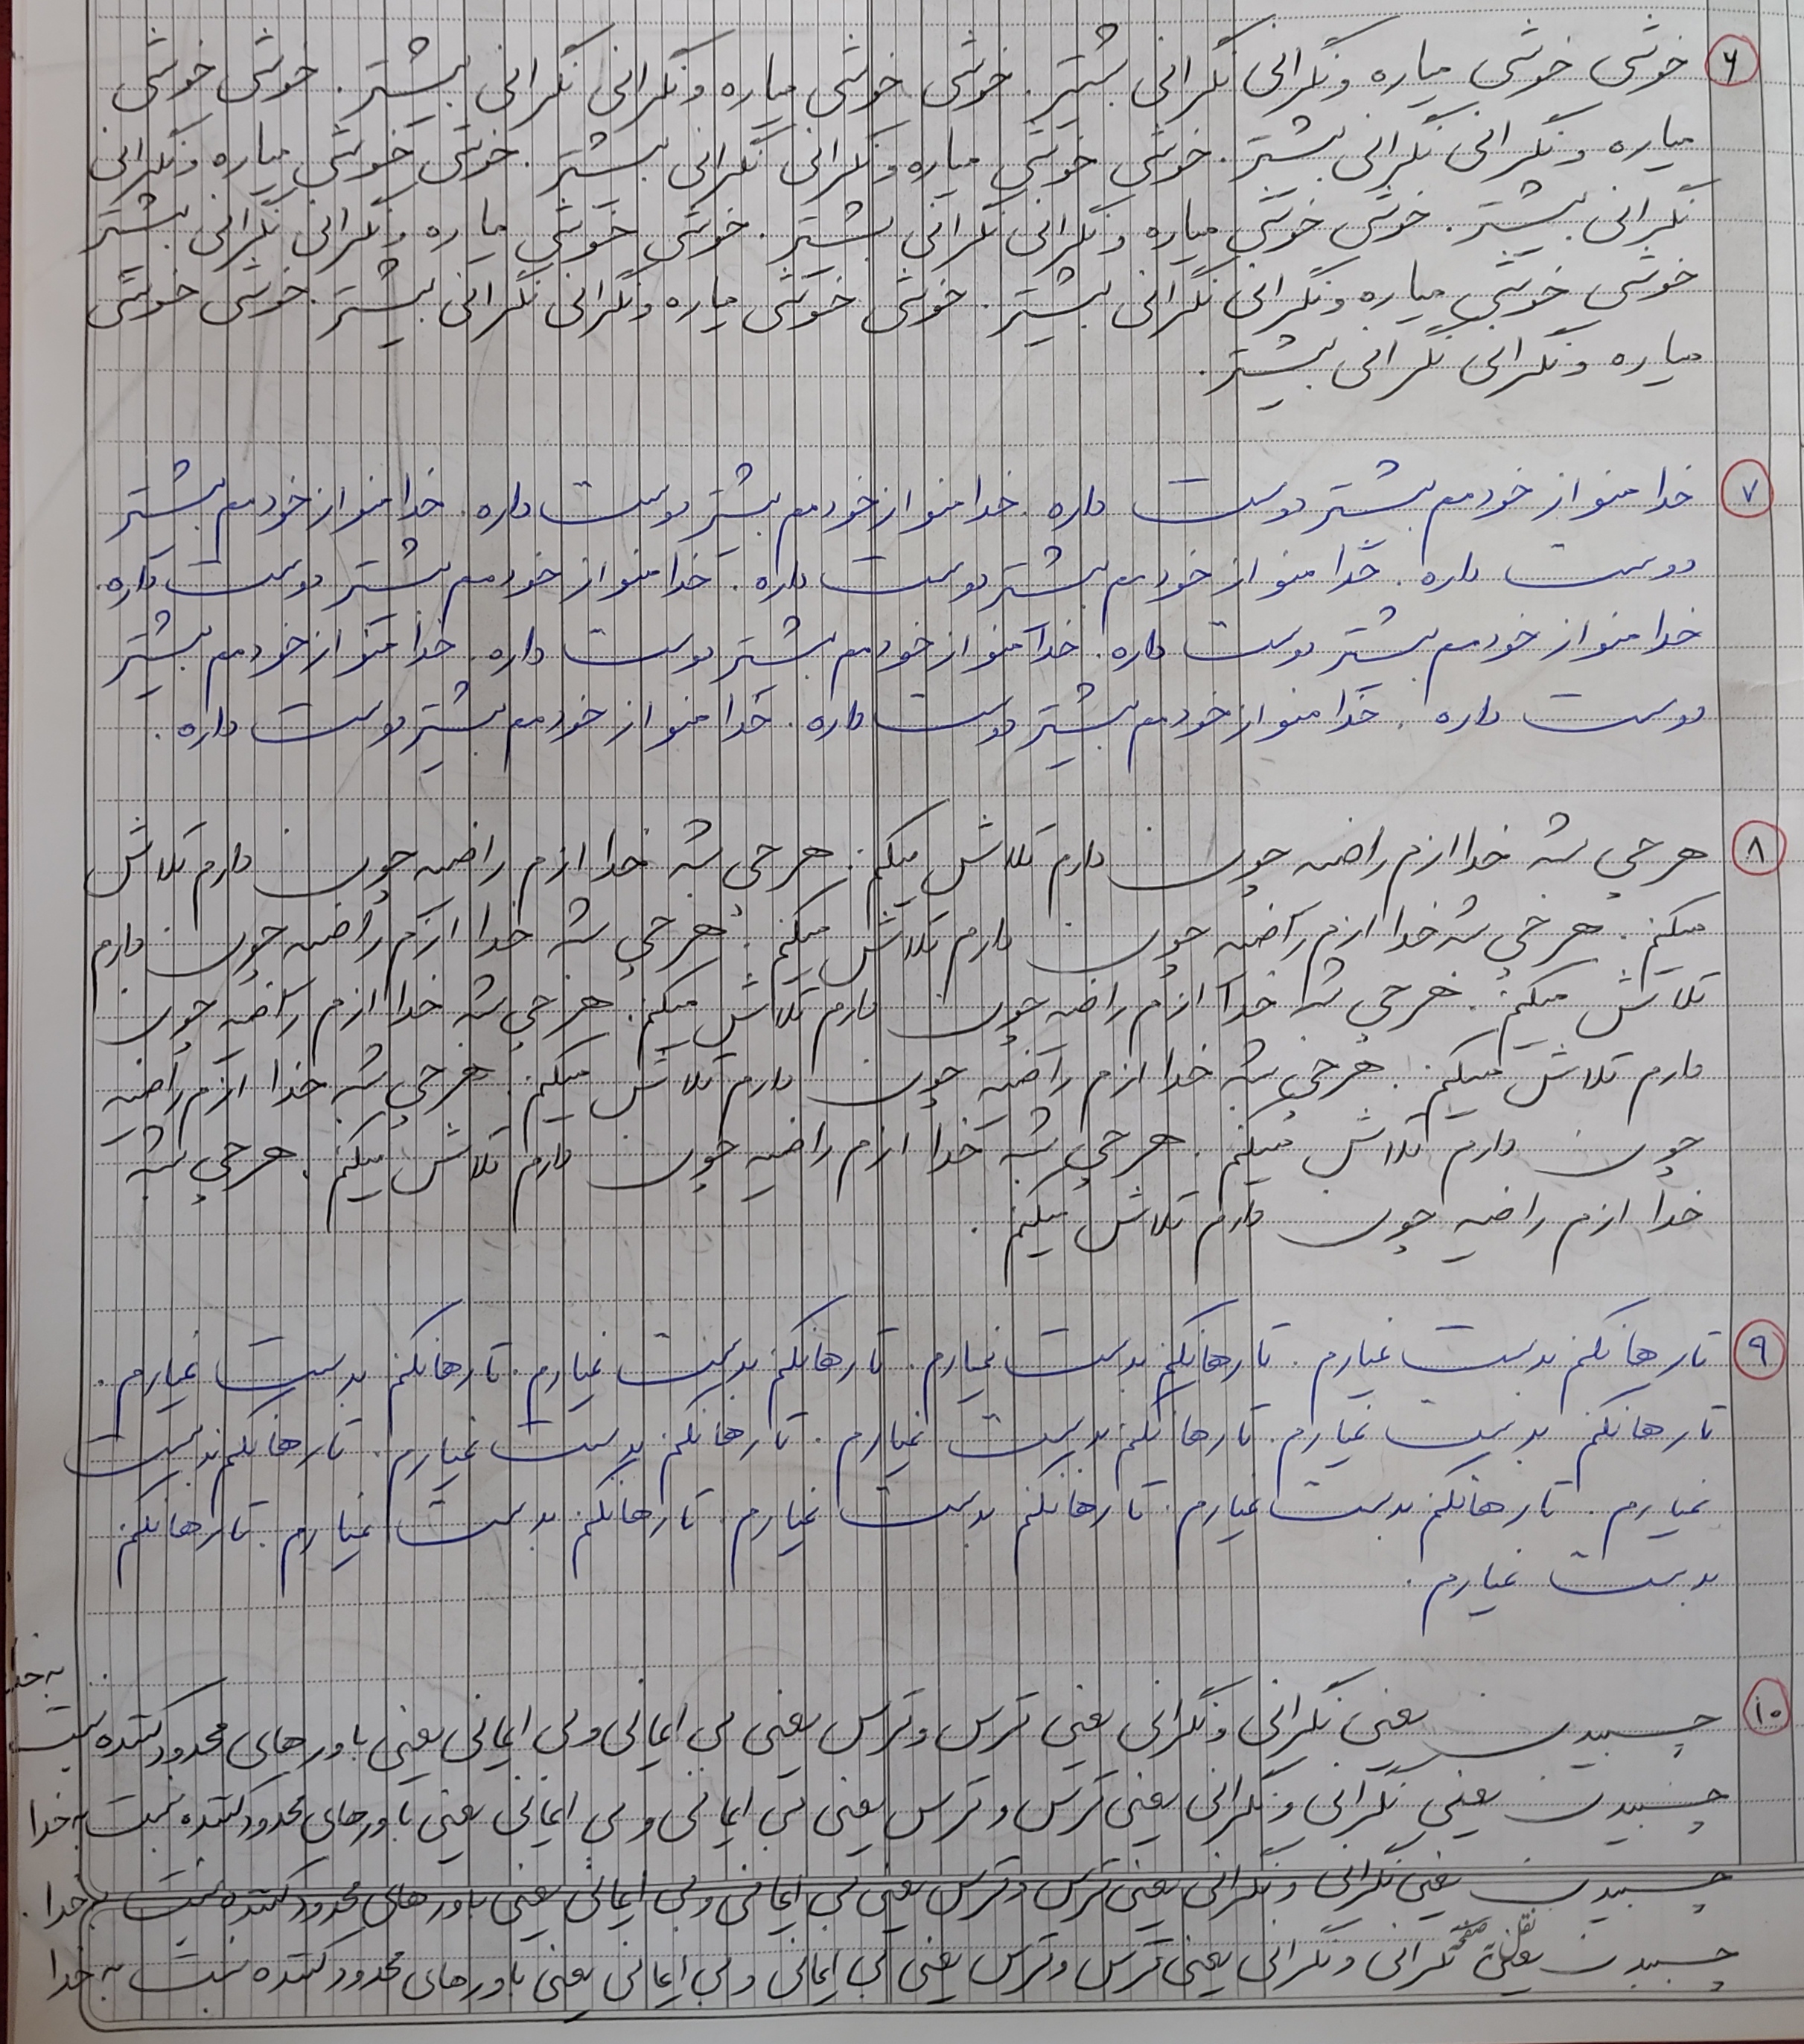 ۶ خوشی خوشی میاره و نگرانی نگرانی بیشتر. خوشی خوشی میاره و نگرانی نگرانی بیشتر. خوشی خوشی
میاره و نگرانی نگرانی بیشتر. خوشی خوشی میاره و نگرانی نگرانی بیشتر. خوشی خوشی میاره و نگرانی
نگرانی بیشتر. خوشی خوشی میاره و نگرانی نگرانی بیشتر. خوشی خوشی میاره و نگرانی نگرانی بیشتر
خوشی خوشی میاره و نگرانی نگرانی بیشتر. خوشی خوشی میاره و نگرانی نگرانی بیشتر. خوشی خوشی
میاره و نگرانی نگرانی بیشتر.
۷ خدا منو از خودمم بیشتر دوست داره. خدا منو از خودمم بیشتر دوست داره. خدا منو از خودمم بیشتر
دوست داره. خدا منو از خودمم بیشتر دوست داره. خدا منو از خودمم بیشتر دوست داره.
خدا منو از خودمم بیشتر دوست داره. خدا منو از خودمم بیشتر دوست داره. خدا منو از خودمم بیشتر
دوست داره. خدا منو از خودمم بیشتر دوست داره. خدا منو از خودمم بیشتر دوست داره.
۸ هرچی بشه خدا ازم راضیه چون دارم تلاش میکنم. هرچی بشه خدا ازم راضیه چون دارم تلاش
میکنم. هرچی بشه خدا ازم راضیه چون دارم تلاش میکنم. هرچی بشه خدا ازم راضیه چون دارم
تلاش میکنم. هرچی بشه خدا ازم راضیه چون دارم تلاش میکنم. هرچی بشه خدا ازم راضیه چون
دارم تلاش میکنم. هرچی بشه خدا ازم راضیه چون دارم تلاش میکنم. هرچی بشه خدا ازم راضیه
چون دارم تلاش میکنم. هرچی بشه خدا ازم راضیه چون دارم تلاش میکنم. هرچی بشه
خدا ازم راضیه چون دارم تلاش میکنم.
۹ تا رها نکنم بدست نمیارم. تا رها نکنم بدست نمیارم. تا رها نکنم بدست نمیارم. تا رها نکنم بدست نمیارم.
تا رها نکنم بدست نمیارم. تا رها نکنم بدست نمیارم. تا رها نکنم بدست نمیارم. تا رها نکنم بدست
نمیارم. تا رها نکنم بدست نمیارم. تا رها نکنم بدست نمیارم. تا رها نکنم بدست نمیارم. تا رها نکنم
بدست نمیارم.
۱۰ چسبیدن یعنی نگرانی و نگرانی یعنی ترس و ترس یعنی بی ایمانی و بی ایمانی یعنی باورهای محدود کننده نسبت به خدا
چسبیدن یعنی نگرانی و نگرانی یعنی ترس و ترس یعنی بی ایمانی و بی ایمانی یعنی باورهای محدود کننده نسبت به خدا
چسبیدن یعنی نگرانی و نگرانی یعنی ترس و ترس یعنی بی ایمانی و بی ایمانی یعنی باورهای محدود کننده نسبت به خدا.
چسبیدن یعنی نگرانی و نگرانی یعنی ترس و ترس یعنی بی ایمانی و بی ایمانی یعنی باورهای محدود کننده نسبت به خدا